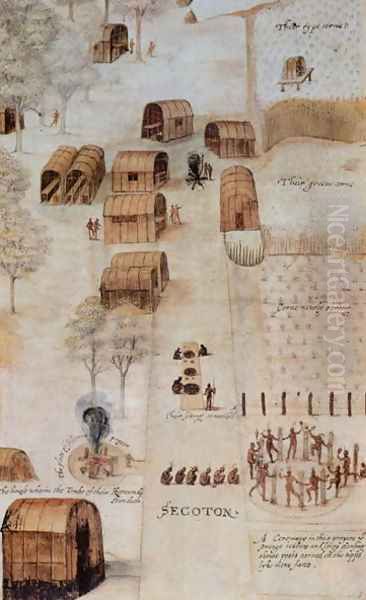 Their rype corne
Their greene corne
Corne newly sprong
Their sitting at meate
The house wherin the Tombe of their Herounds
standeth
SECOTON.
A Ceremony in their prayers w
strange iesturs and songs dansing
abowt posts carued on the topps
lyke mens faces.
NiceArtGallery.com